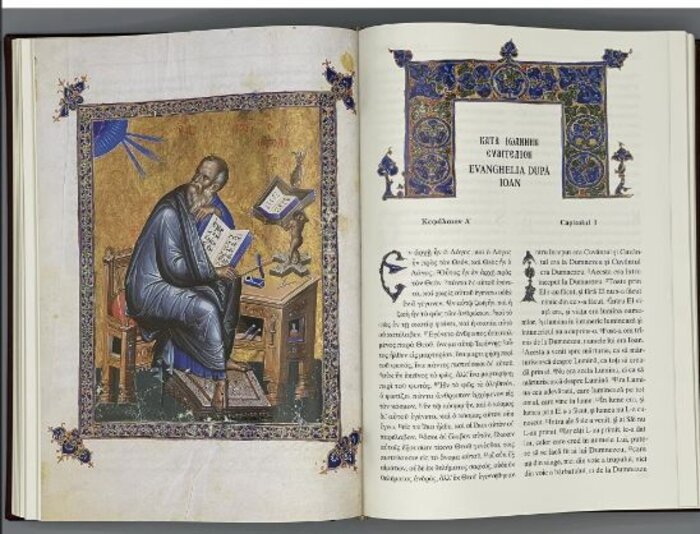 ΚΑΤΑ ΙΩΑΝΝΗΝ
ΕΥΑΓΓΕΛΙΟΝ
EVANGHELIA DUPĂ
IOAN
Κεφάλαιον Α΄
Ἐν ἀρχῇ ἦν ὁ Λόγος, καὶ ὁ Λόγος
ἦν πρὸς τὸν Θεόν, καὶ Θεὸς ἦν ὁ
Λόγος. Οὗτος ἦν ἐν ἀρχῇ πρὸς
τὸν Θεόν. πάντα δι' αὐτοῦ ἐγένε-
το, καὶ χωρὶς αὐτοῦ ἐγένετο οὐδὲ ἓν
ὃ γέγονεν. Ἐν αὐτῷ ζωὴ ἦν, καὶ ἡ
ζωὴ ἦν τὸ φῶς τῶν ἀνθρώπων. καὶ τὸ
φῶς ἐν τῇ σκοτίᾳ φαίνει, καὶ ἡ σκοτία αὐτὸ
οὐ κατέλαβεν. Ἐγένετο ἄνθρωπος ἀπεσταλ-
μένος παρὰ Θεοῦ, ὄνομα αὐτῷ Ἰωάννης· οὗ-
τος ἦλθεν εἰς μαρτυρίαν, ἵνα μαρτυρήσῃ περὶ
τοῦ φωτός, ἵνα πάντες πιστεύσωσι δι' αὐτοῦ.
οὐκ ἦν ἐκεῖνος τὸ φῶς, ἀλλ' ἵνα μαρτυρήσῃ
περὶ τοῦ φωτός. Ἦν τὸ φῶς τὸ ἀληθινόν,
ὃ φωτίζει πάντα ἄνθρωπον ἐρχόμενον εἰς
τὸν κόσμον. ἐν τῷ κόσμῳ ἦν, καὶ ὁ κόσμος δι'
αὐτοῦ ἐγένετο, καὶ ὁ κόσμος αὐτὸν οὐκ
ἔγνω. εἰς τὰ ἴδια ἦλθε, καὶ οἱ ἴδιοι αὐτὸν οὐ
παρέλαβον. ὅσοι δὲ ἔλαβον αὐτόν, ἔδωκεν
αὐτοῖς ἐξουσίαν τέκνα Θεοῦ γενέσθαι, τοῖς
πιστεύουσιν εἰς τὸ ὄνομα αὐτοῦ, οἳ οὐκ ἐξ
αἱμάτων, οὐδὲ ἐκ θελήματος σαρκός, οὐδὲ ἐκ
θελήματος ἀνδρός, ἀλλ' ἐκ Θεοῦ ἐγεννήθησαν
Capitolul 1
La început era Cuvântul și Cuvân-
tul era la Dumnezeu și Cuvântul
era Dumnezeu. Acesta era întru
început la Dumnezeu. Toate prin
El s-au făcut, și fără El nimic
din ce s-a făcut. Întru El
viață era și viața era lumina oame-
nilor. Și lumina luminează în întuneric și
întunericul nu a cuprins-o. Fost-a om tri-
mis de la Dumnezeu, numele lui era Ioan.
Acesta a venit spre mărturie, ca să măr-
turisească despre Lumină, ca toți să crea-
dă prin el. Nu era el Lumina, ci ca să
mărturisească despre Lumină. Era Lumi-
na cea adevărată, care luminează pe tot
omul, care vine în lume. În lume era și
lumea prin El s-a făcut, și lumea nu L-a cu-
noscut. Întru ale Sale a venit, și ai Săi nu
L-au primit. Iar câți L-au primit, le-a dat
lor, celor care cred în numele Lui, pute-
re să se facă fii ai lui Dumnezeu,
nu din sânge, nici din voie a trupului, nici
din voie a bărbatului, ci de la Dumnezeu